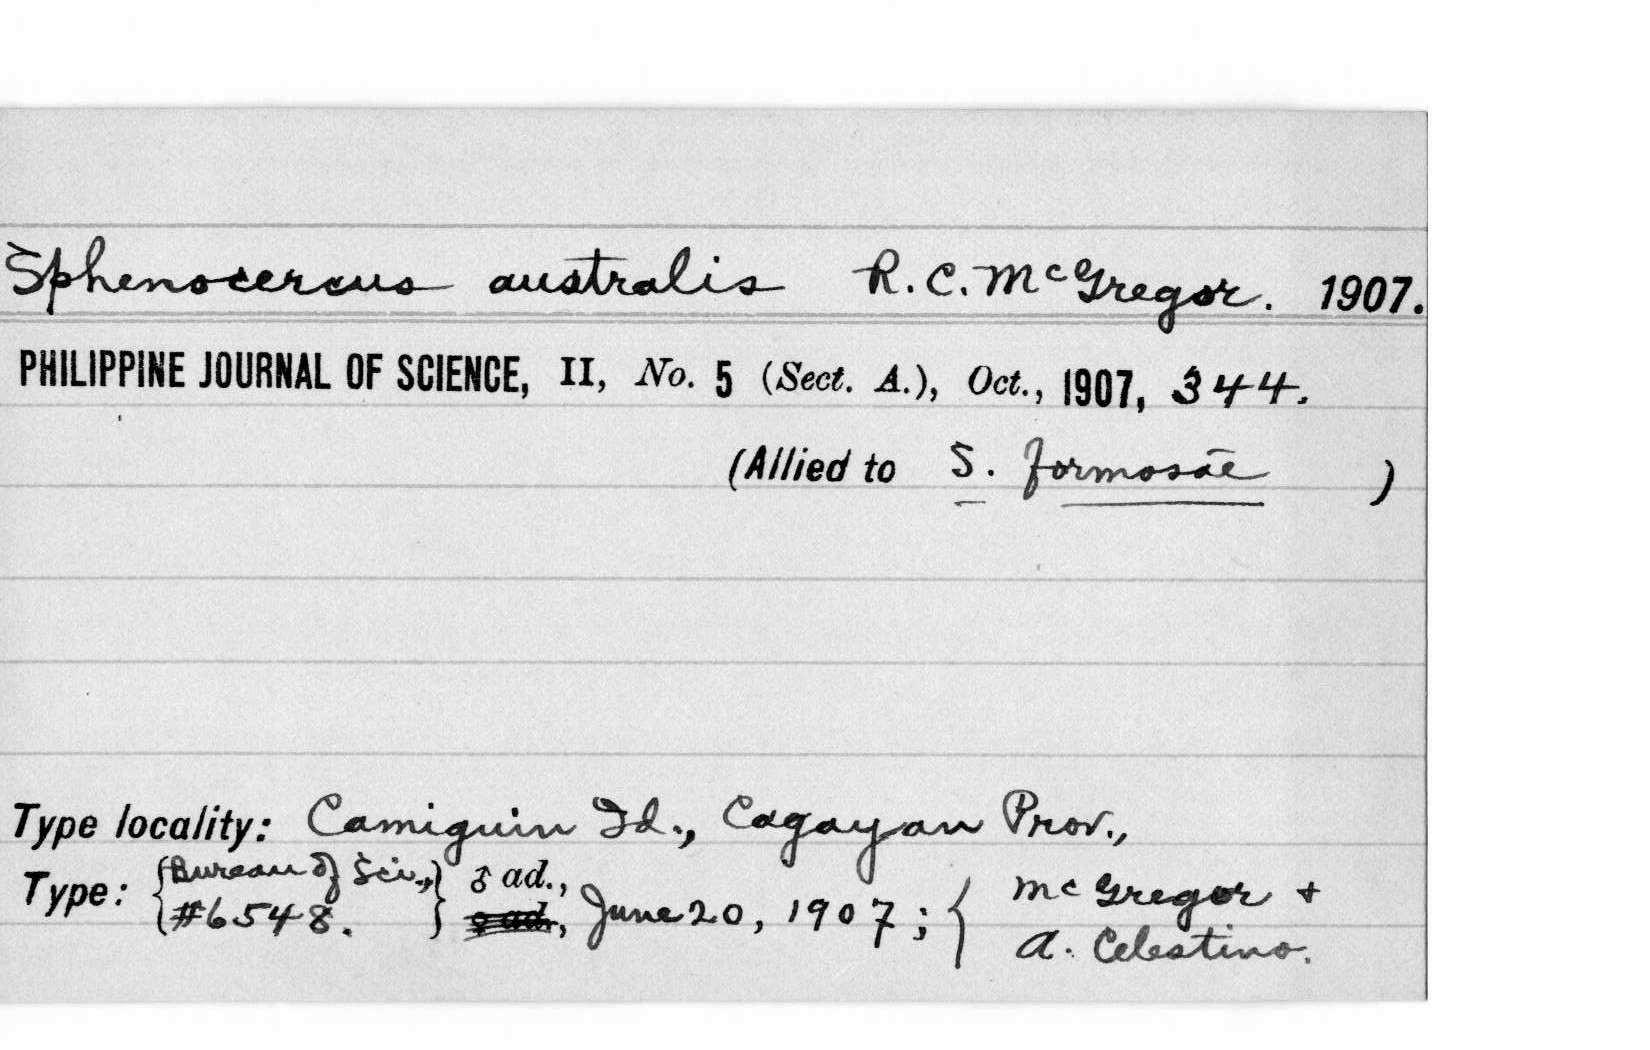 Sphenocercus australis R.C. McGregor. 1907.
PHILIPPINE JOURNAL OF SCIENCE, II, No. 5 (Sect. A.), Oct., 1907, 344.
(Allied to S. formosae )
Type locality: Camiguin Id., Cagayan Prov.,
Type: {Bureau of Sci., #6548.} ♂ ad., ♀ ad., June 20, 1907; { McGregor + A. Celestino.